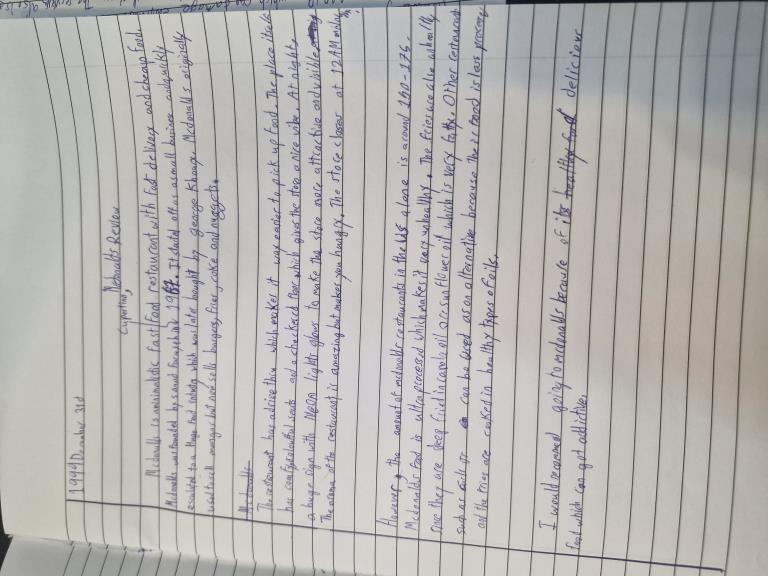 1999 December 31st
Mcdonald's Review
Cupertino,
Mcdonalls is animalistic fast food restaurant with fast delivery and cheap food.
Mcdonalls was founded by 19 It started off as a small business and quickly
to a huge food industry which was later bought by george Mcdonall's originally
used to sell but now sells burgers, fries, coke and nuggets.
Mcdonalls
The restaurant has a drive thru which makes it way easier to pick up food. The place itself
has comfy colourful seats and a checkered floor which gives the store a nice vibe. At night
a huge sign with Neon lights glows to make the store more attractive and visible
The aroma of the restaurant is amazing but makes you hungry. The store closes at 12 AM
However, the amount of mcdonalls restaurants in the US alone is around 160-175.
Mcdonalls food is ultra processed which makes it very unhealthy. The fries are also unhealthy
since they are deep fried in canola oil or sun flower oil which is very fatty. Other restaurants
such as can be used as an alternative because their food is less processed
and the fries are cooked in healthy types of oils.
I would recommend going to mcdonalls because of its healthy food delicious
food which can get addictive.